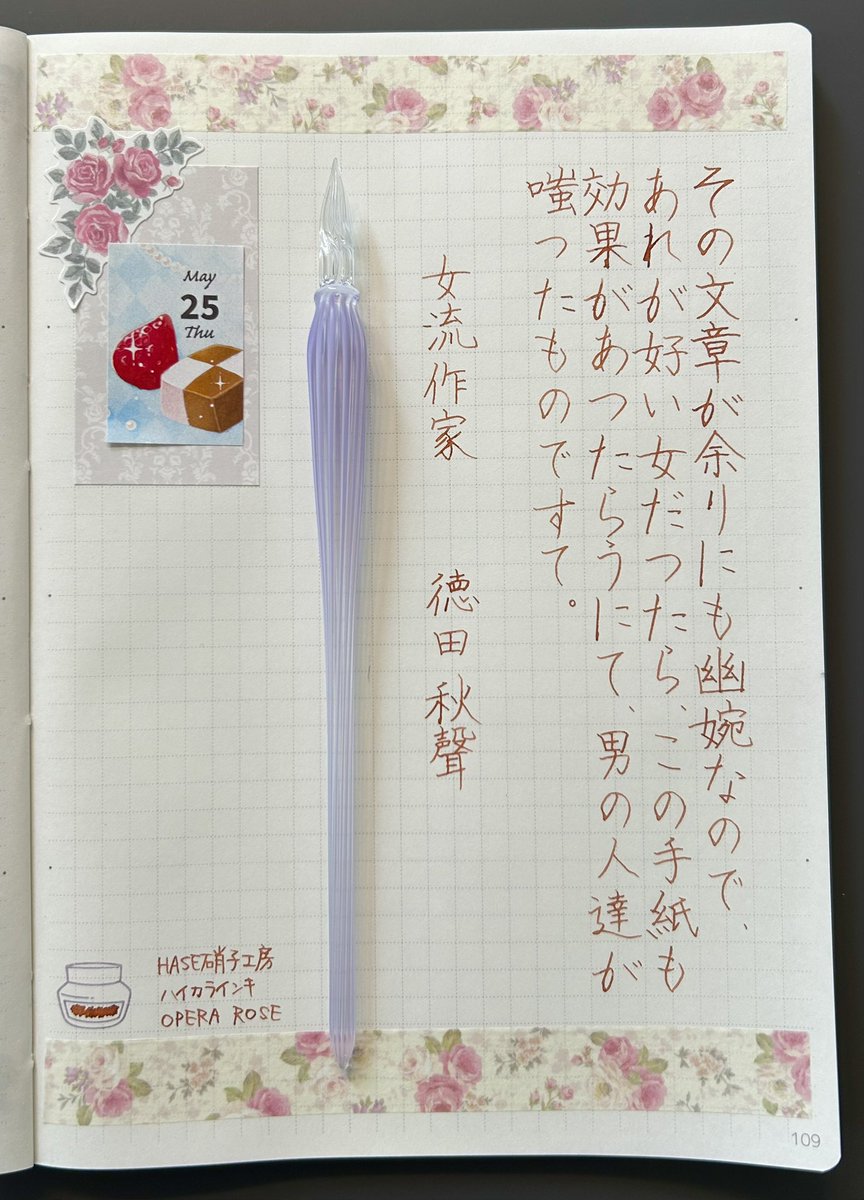 その文章が余りにも幽婉なので、
あれが好い女だつたら、この手紙も
効果があつたらうにて、男の人達が
嗤つたものですて。
女流作家 徳田秋聲
May
25
Thu
HASE硝子工房
ハイカラインキ
OPERA ROSE
109